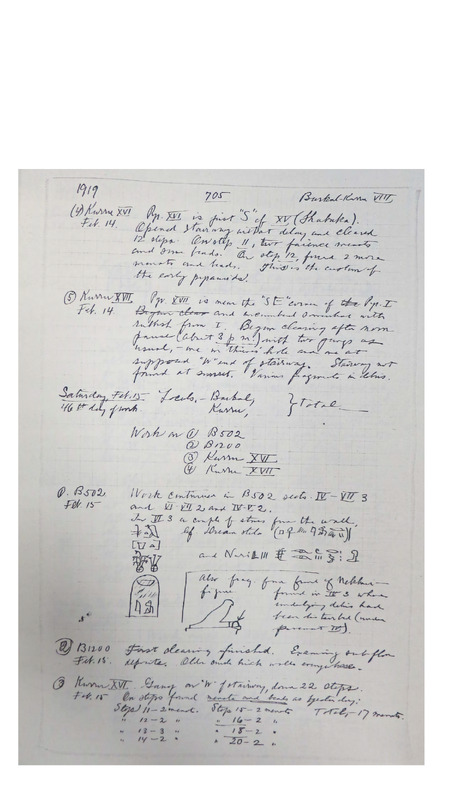 1919 705 Barkal-Kurru VIII
(4) Kurru XVI Pyr. XVI is just "S" of XV (Shabaka).
Feb. 14. Opened stairway without delay and cleared
12 steps. On step 11, two faience
and some beads. On step 12, found 2 more
and beads. This is the custom of
the early pyramids.
(5) Kurru XVII Pyr. XVII is near the "SE" corner of the Pyr. I
Feb. 14 Began clear and encumbered somewhat with
rubbish from I. Began clearing after noon
(about 3 p.m.) with two gangs as
usual, - one in thieves' hole and one at
supposed "W" end of stairway. Stairway not
found at sunset. Various fragments in debris.
Saturday, Feb. 15 Locals, - Barkal, } Total
46th day of work Kurru,
Work on (1) B502
(2) B1200
(3) Kurru XVI
(4) Kurru XVII
(1). B502 Work continues in B502 sects. IV - VII 3
Feb. 15 and VI-VII 2 and IV-V. 2.
In VI 3 a couple of stones from the wall,
and
Also frag. from
figure found in 3 where
underlying debris had
been disturbed (under
pavement
(2) B1200 First clearing finished. Examining out flow
Feb. 15. Older mud brick walls
(3) Kurru XVI Gang on "W" of stairway, down 22 steps.
Feb. 15 On steps found and beads as yesterday:
Step 11 - 2 Step 15 - 2 Total - 17
" 12 - 2 " " 16 - 2 "
" 13 - 3 " " 18 - 2 "
" 14 - 2 " " 20 - 2 "